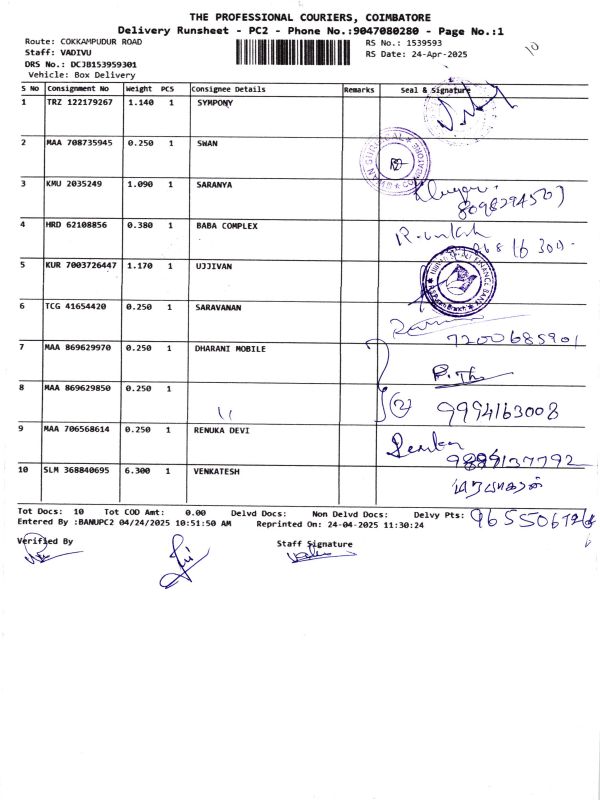 THE PROFESSIONAL COURIERS, COIMBATORE
Delivery Runsheet - PC2 - Phone No.:9047080280 - Page No.:1
Route: COKKAMPUDUR ROAD
RS No.: 1539593
10
Staff: VADIVU
RS Date: 24-Apr-2025
DRS No.: DCJB153959301
Vehicle: Box Delivery
S No Consignment No Weight PCS Consignee Details Remarks Seal & Signature
1 TRZ 122179267 1.140 1 SYMPONY
2 MAA 708735945 0.250 1 SWAN
3 KMU 2035249 1.090 1 SARANYA
8098294507
4 HRD 62108856 0.380 1 BABA COMPLEX
5 KUR 7003726447 1.170 1 UJJIVAN
6 TCG 41654420 0.250 1 SARAVANAN
7200685901
7 MAA 869629970 0.250 1 DHARANI MOBILE
8 MAA 869629850 0.250 1
(2) 9994163008
9 MAA 706568614 0.250 1 RENUKA DEVI
10 SLM 368840695 6.300 1 VENKATESH
Tot Docs: 10 Tot COD Amt: 0.00 Delvd Docs: Non Delvd Docs: Delvy Pts:
Entered By :BANUPC2 04/24/2025 10:51:50 AM Reprinted On: 24-04-2025 11:30:24
Verified By
Staff Signature